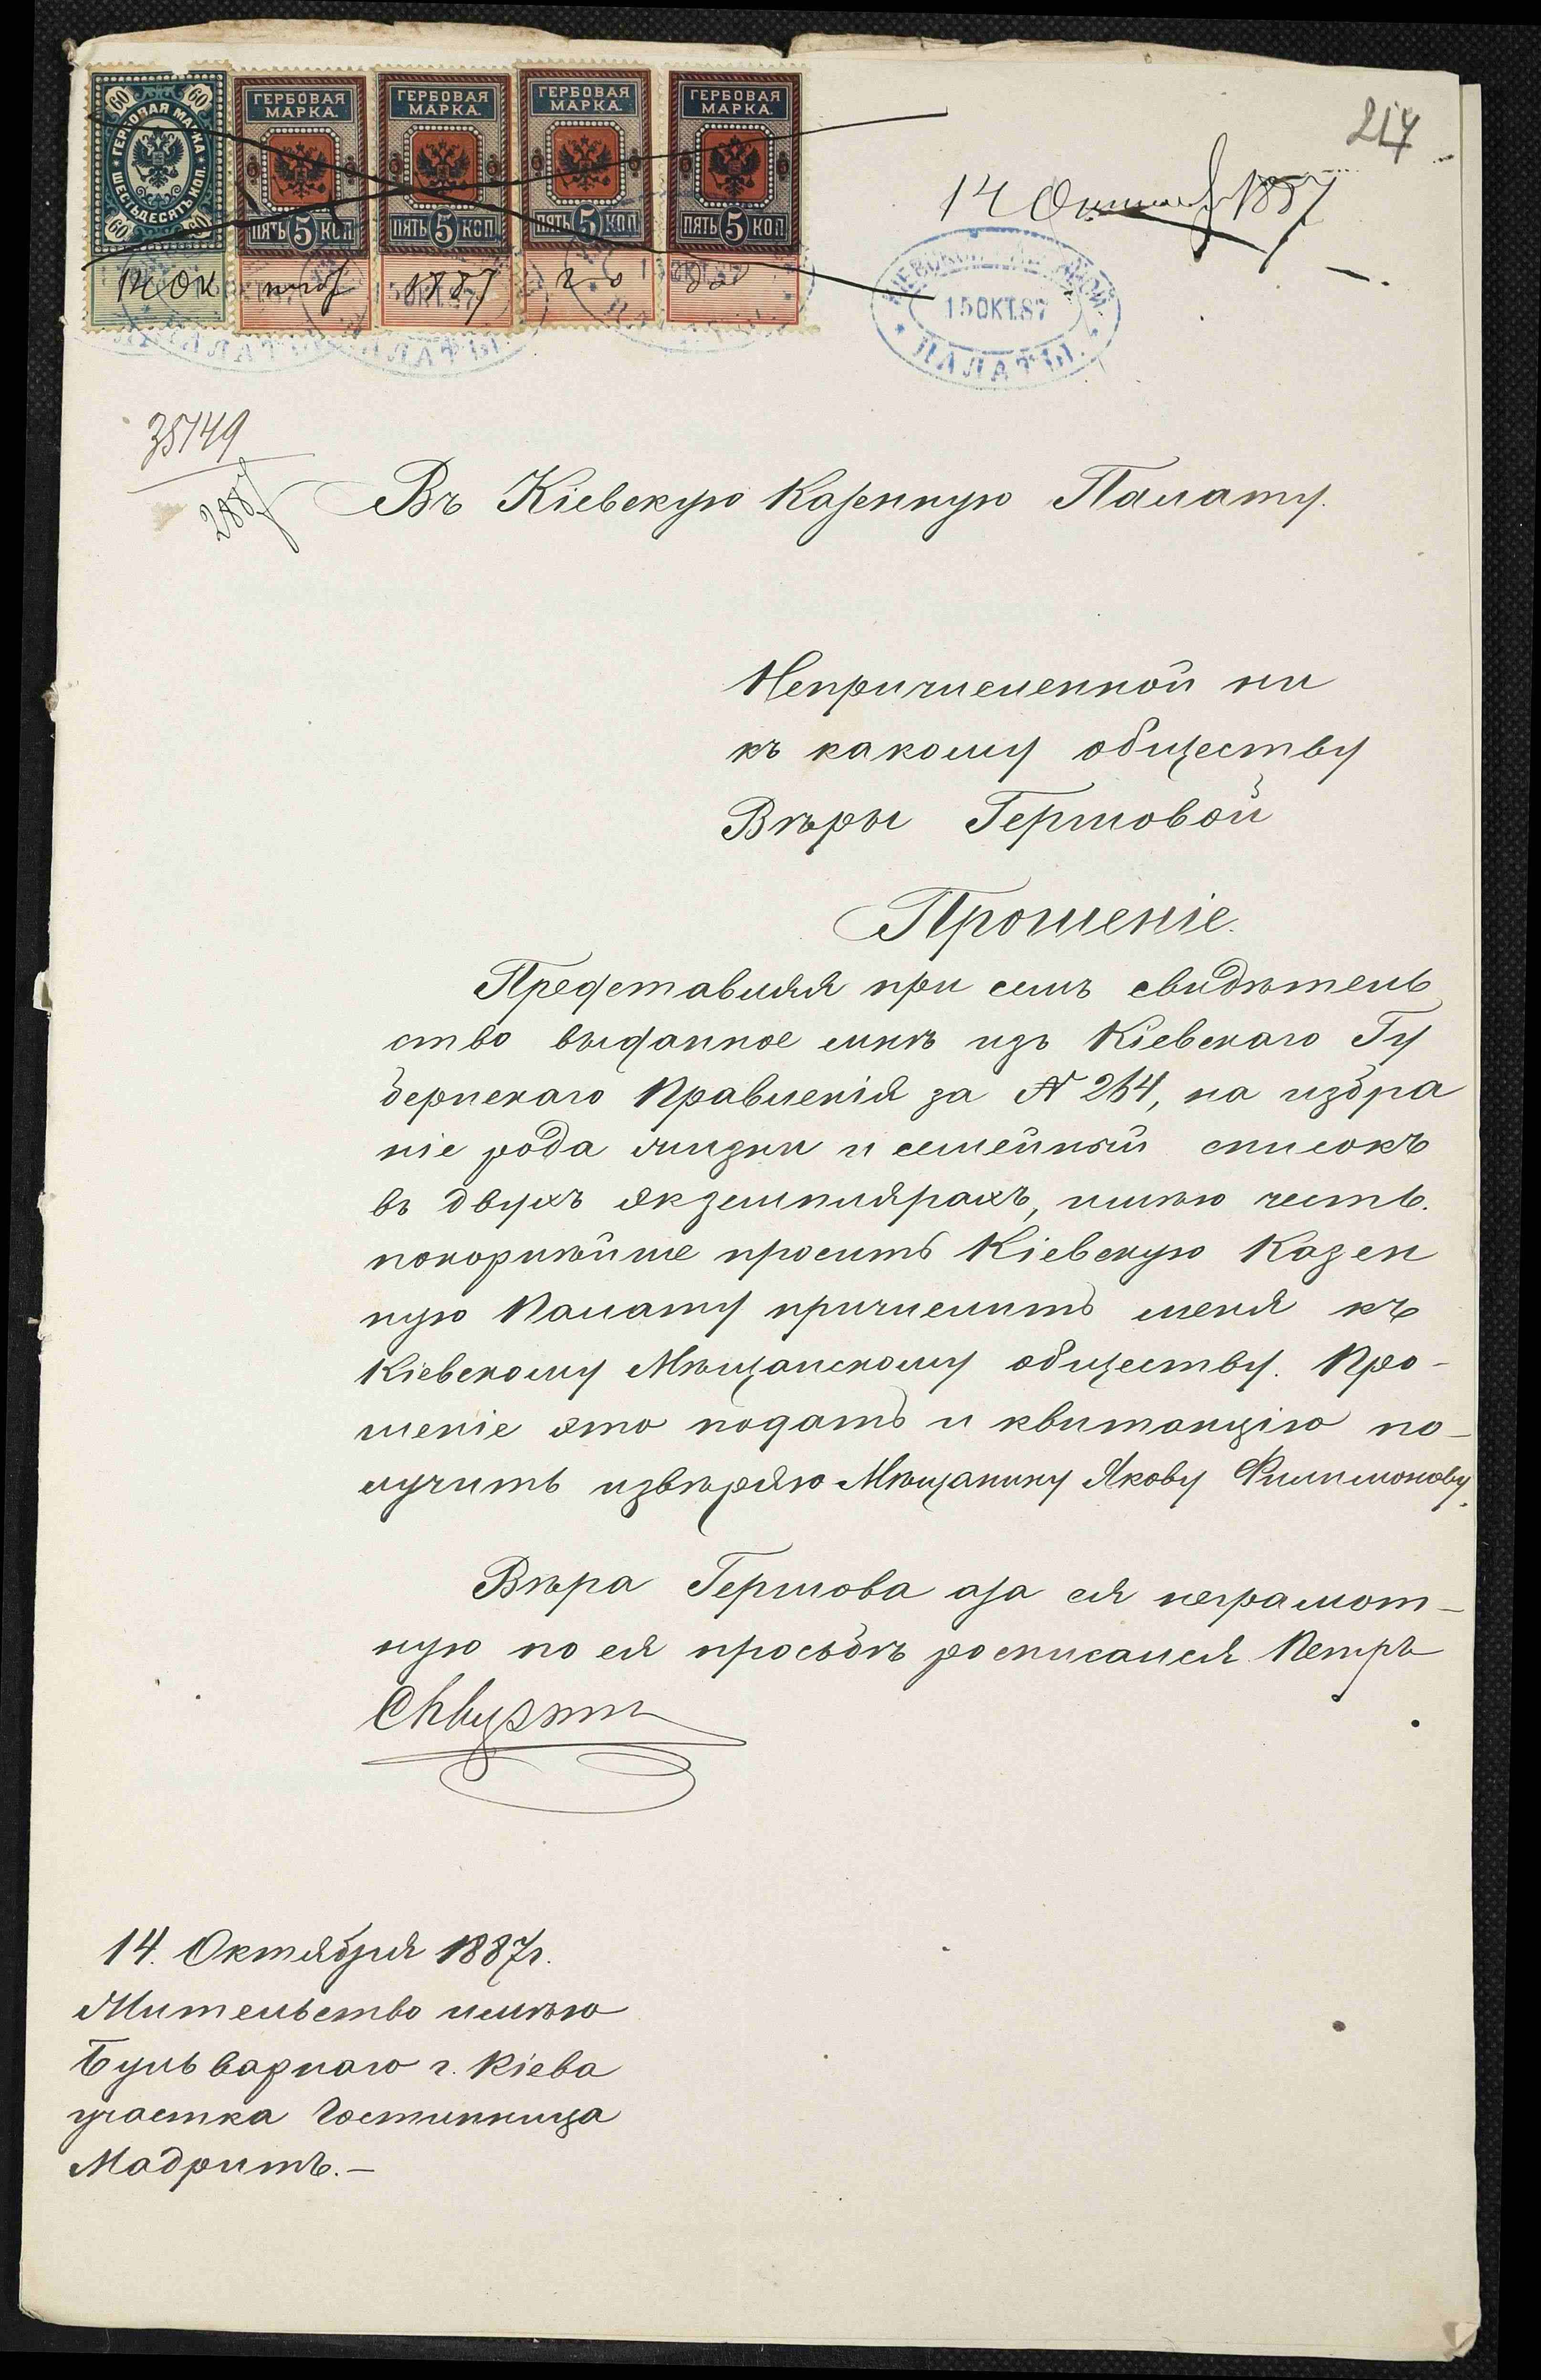 217
60 60
ГЕРБОВАЯ МАРКА
ШЕСТЬДЕСЯТЪ КОП.
60 60
ГЕРБОВАЯ МАРКА.
ПЯТЬ 5 КОП
ГЕРБОВАЯ МАРКА.
ПЯТЬ 5 КОП
ГЕРБОВАЯ МАРКА.
ПЯТЬ 5 КОП
ГЕРБОВАЯ МАРКА.
ПЯТЬ 5 КОП
14 Ок 1887 го
14 Октября 1887
15 ОКТ.87
ПАЛАТЫ.
35149
Въ Кіевскую Казенную Палату.
Непричисленной ни
къ какому обществу
Вѣры Гершовой
Прошеніе.
Представляя при семъ свидѣтель
ство выданное мнѣ изъ Кіевскаго Гу
бернскаго Правленія за № 264, на избра
ніе рода жизни и семейный списокъ
въ двухъ экземплярахъ, имѣю честь.
покорнѣйше просить Кіевскую Казен
ную Палату причислить меня къ
Кіевскому Мѣщанскому обществу. Про-
шеніе это подать и квитанцію по-
лучить извѣряю Мѣщанину Якову Филимонову.
Вѣра Гершова а за ея неграмот-
ную по ея просьбѣ росписался Петръ
14. Октября 1887 г.
Жительство имѣю
Бульварнаго г. Кіева
участка Гостинница
Мадритъ.—